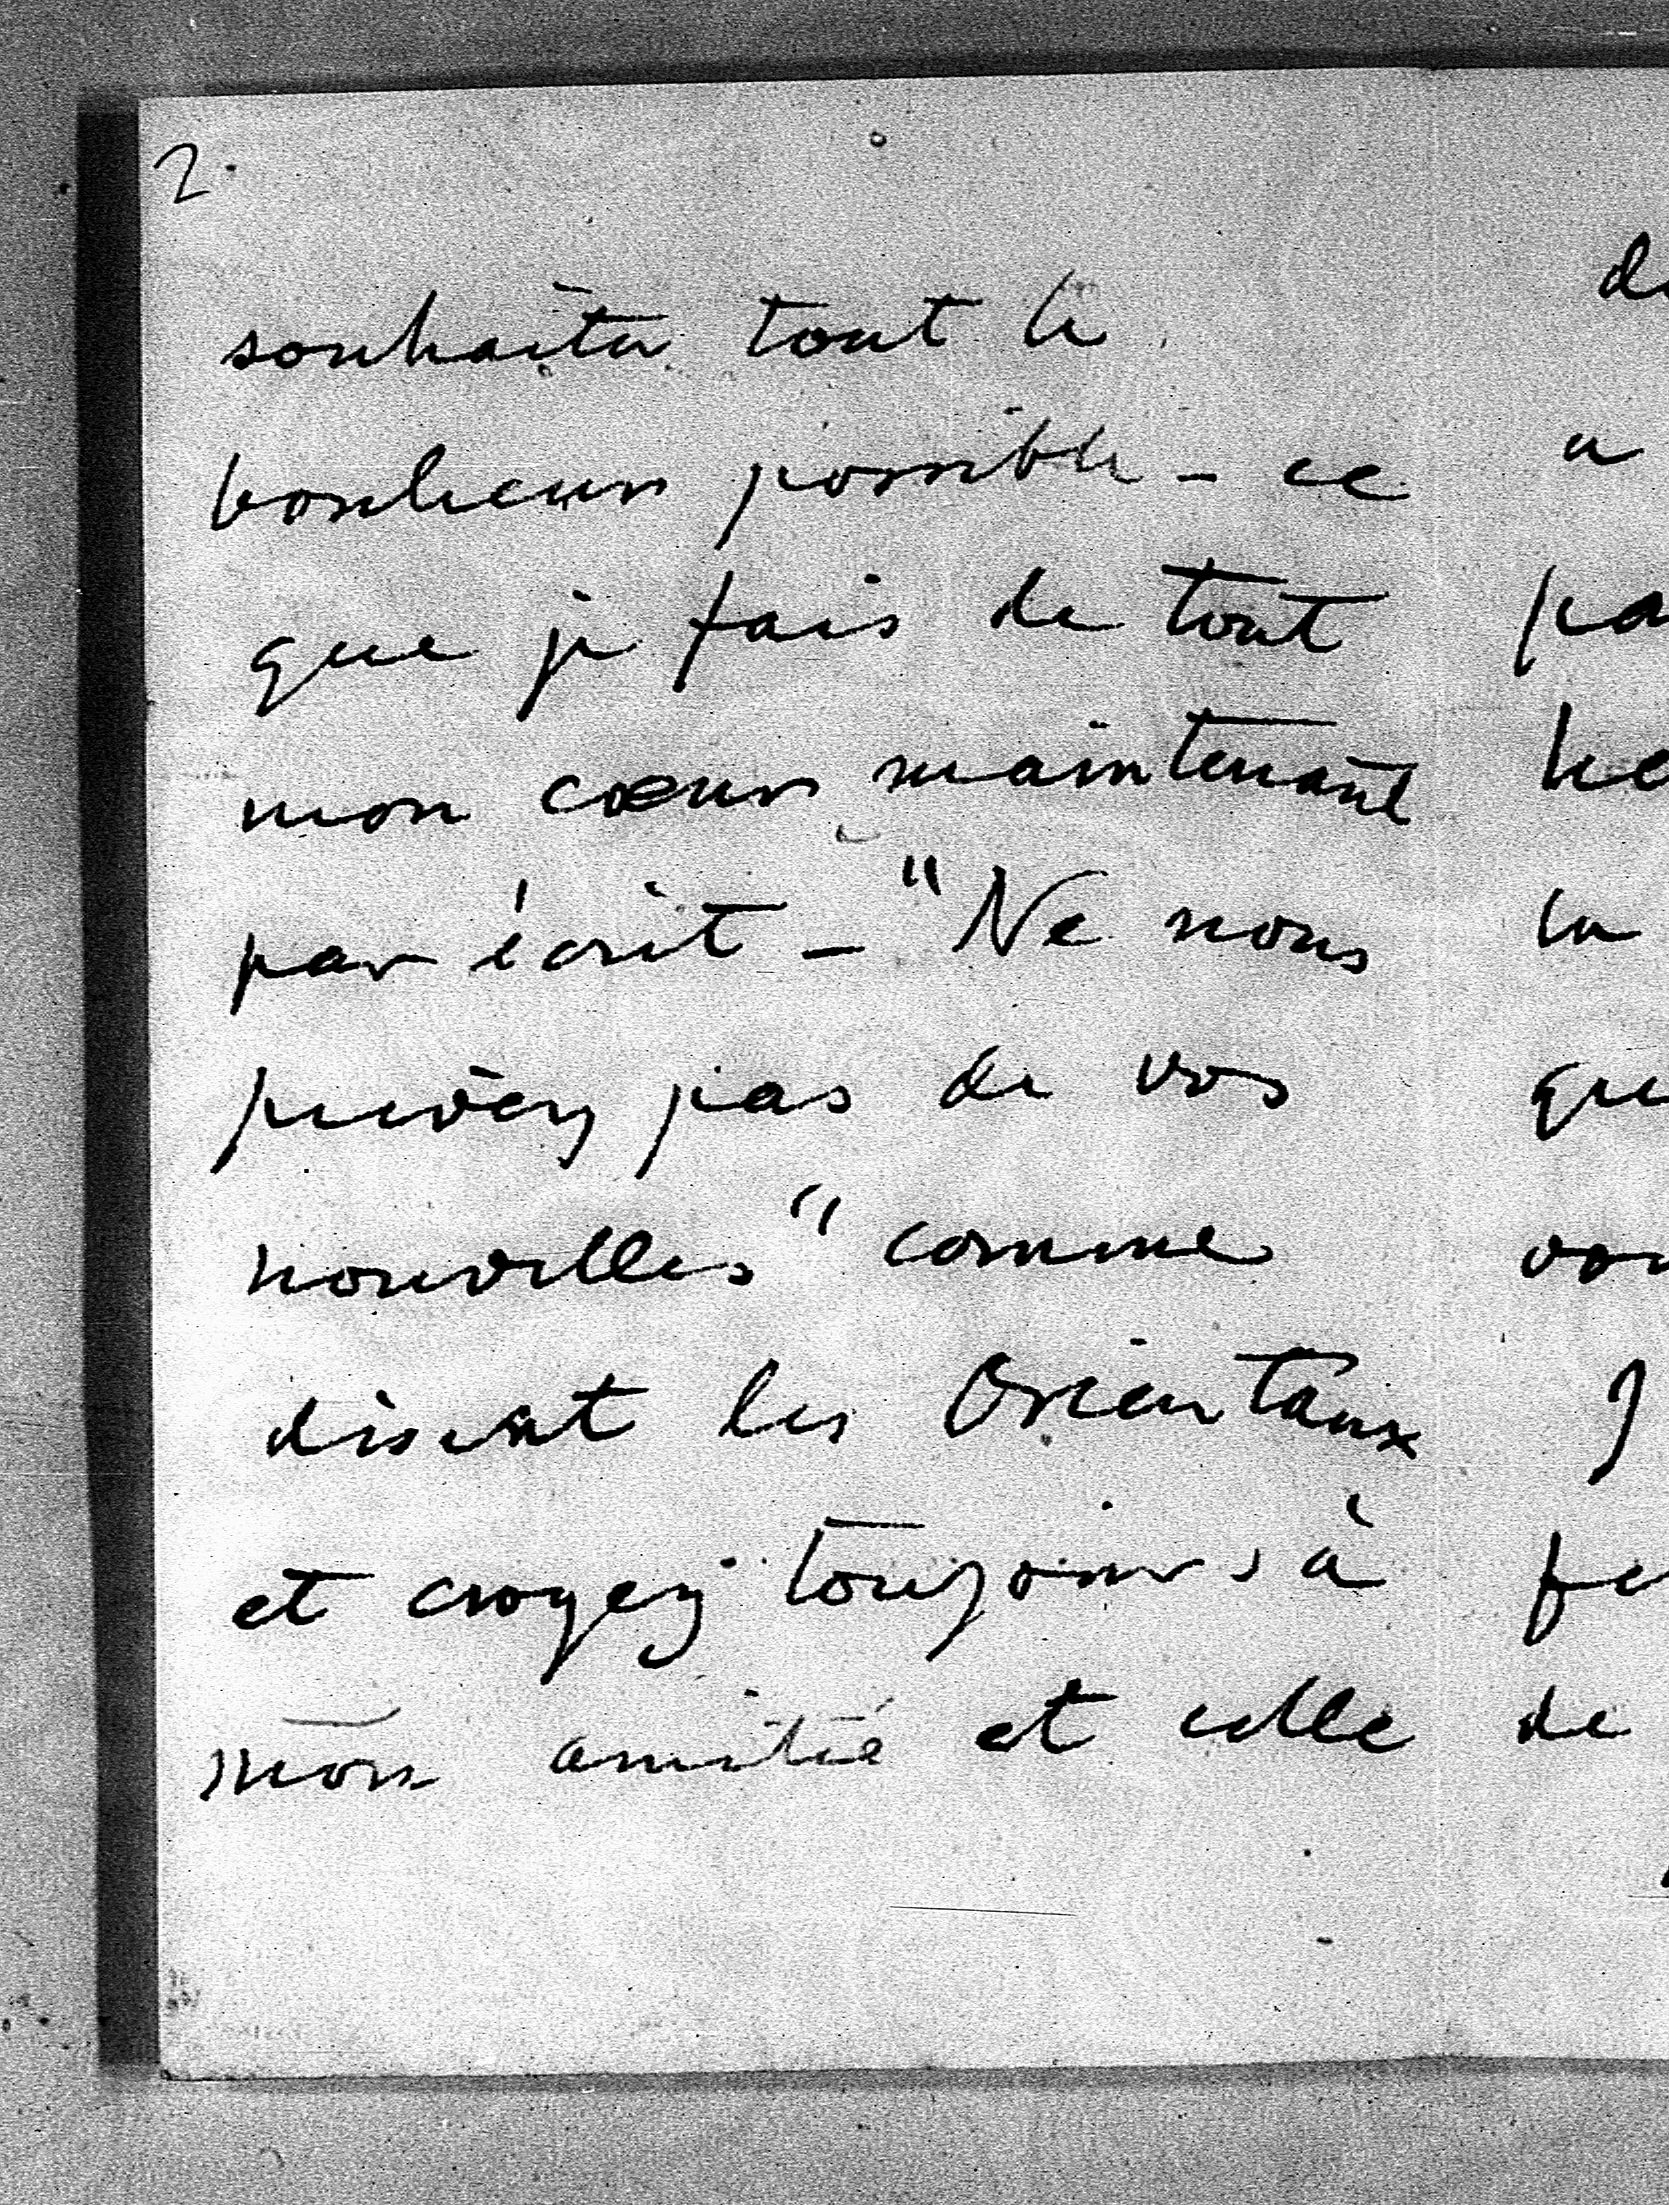 2.
souhaiter tout le
bonheur possible - ce
que je fais de tout
mon cœur maintenant
par écrit - "Ne nous
privez pas de vos
nouvelles" comme
disent les Orientaux
et croyez toujours à
mon amitié et celle
de